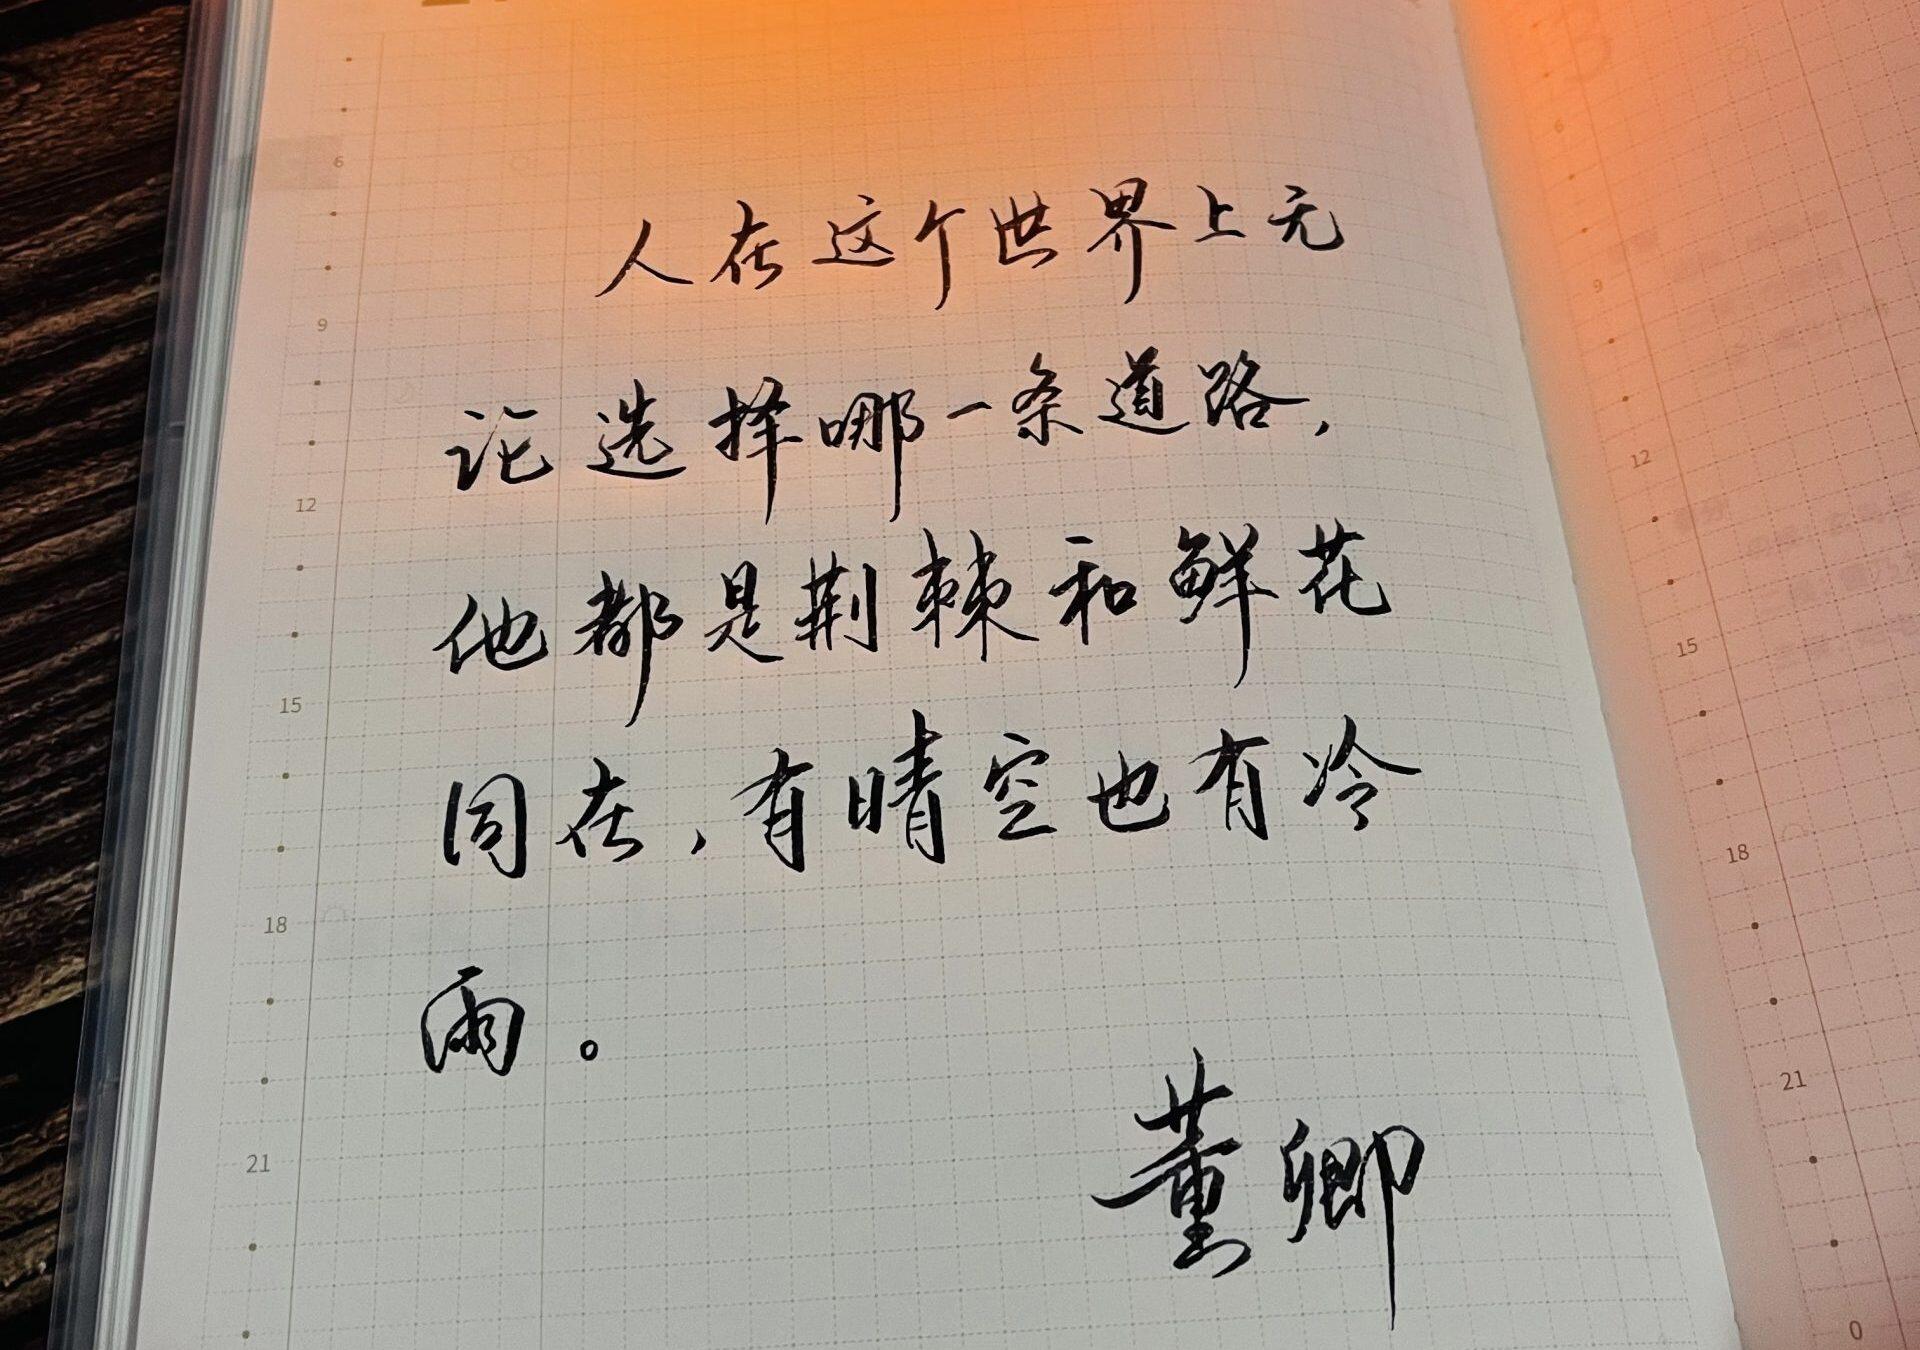 人在这个世界上无
论选择哪一条道路,
他都是荆棘和鲜花
同在,有晴空也有冷
雨。
董卿
6
9
12
15
18
21
6
9
12
15
18
21
0